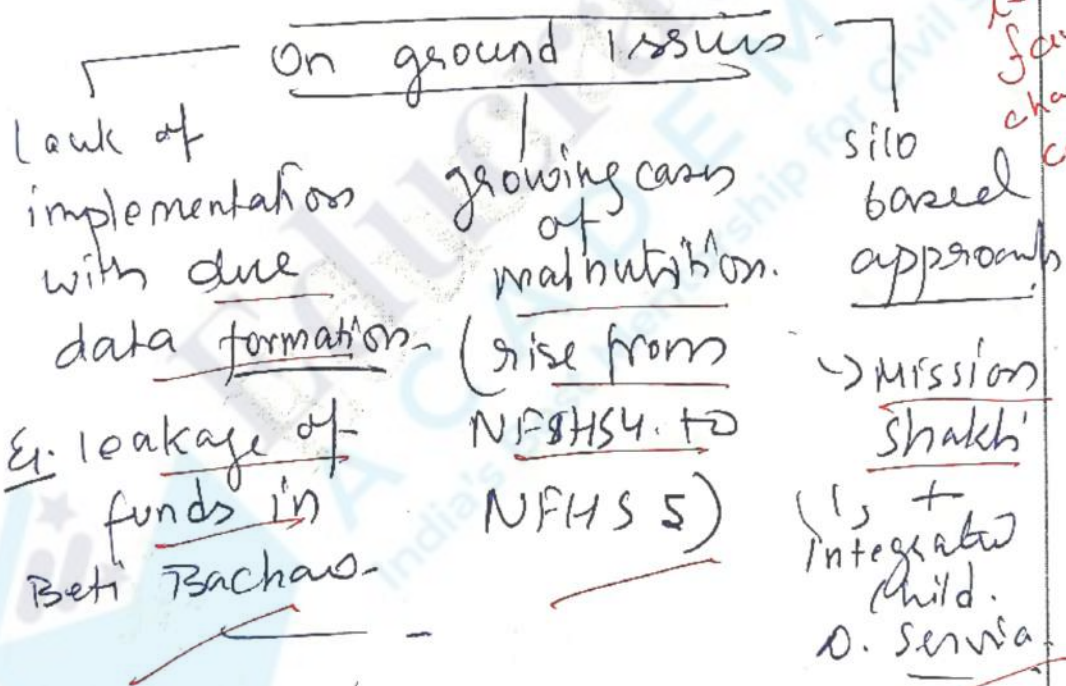 On ground issues
lack of
implementation
with due
data formation.
Eg. leakage of
funds in
Beti Bachao.
growing cases
of
malnutrition.
(rise from
NFHS4 to
NFHS 5)
silo
based
approach
→ Mission
Shakti
+
Integrated
Child.
D. Service
Educra
ACADEM
India's Best Mentorship for Civil S